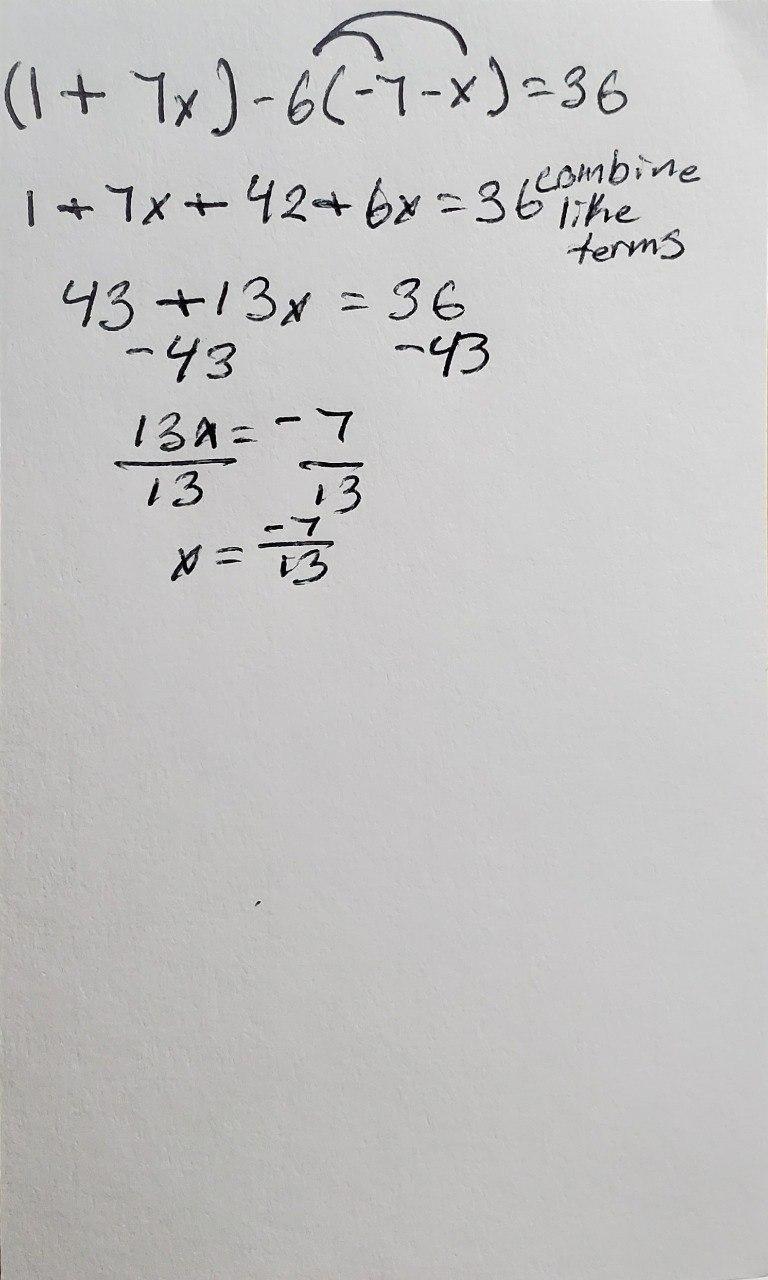 (1 + 7x) - 6(-7 - x) = 36
1 + 7x + 42 + 6x = 36 combine
like
terms
43 + 13x = 36
-43 -43
13x = -7
13 13
x = -7
13